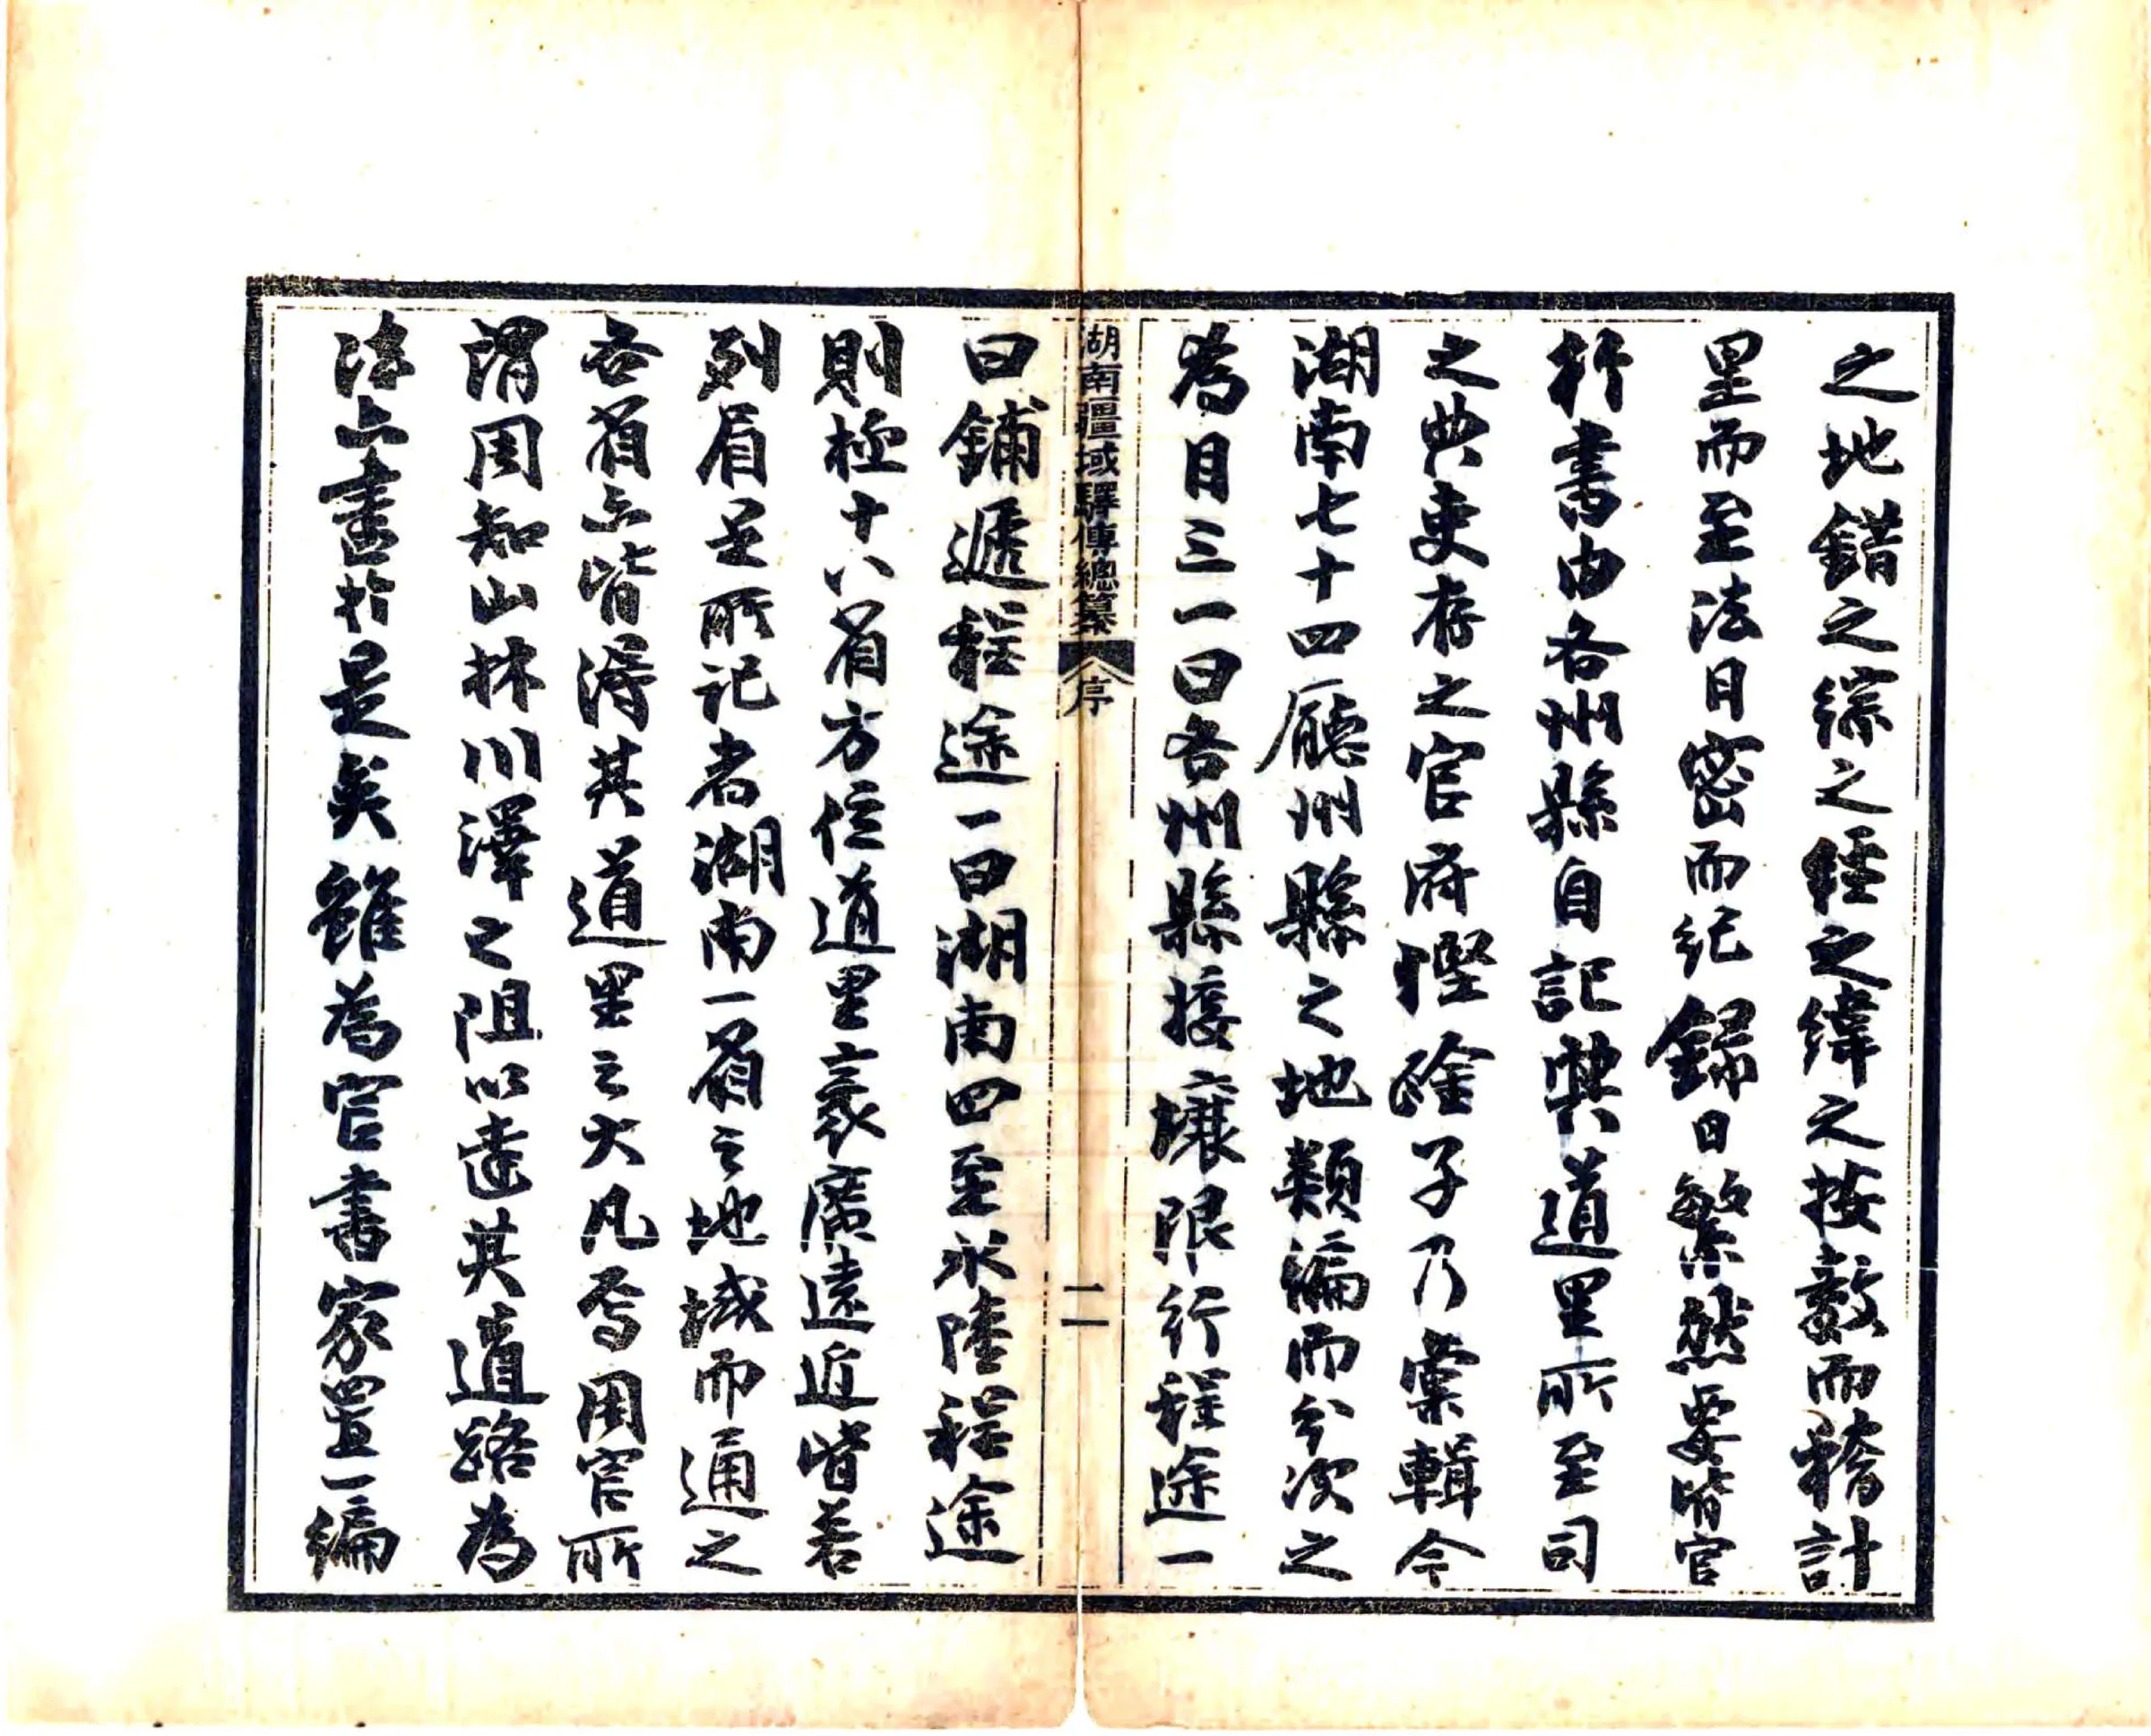 之地錯之綜之經之緯之按數而稽計
里而至法日密而紀錄日繁然要皆官
行書由各州縣自記其道里所至司
之典吏存之官府慳除子乃彙輯今
湖南七十四廳州縣之地類編而分次之
為目三一曰各州縣接壤限行程途一
湖南疆域驛傳總纂
序
二
曰鋪遞程途一曰湖南四至水陸程途
則極十八省方位道里袤廣遠近皆若
列眉是所記者湖南一省之地域而通之
各省亦皆得其道里之大凡焉周官所
謂周知山林川澤之阻以達其道路為
法亦盡於是矣雖為官書家置一編